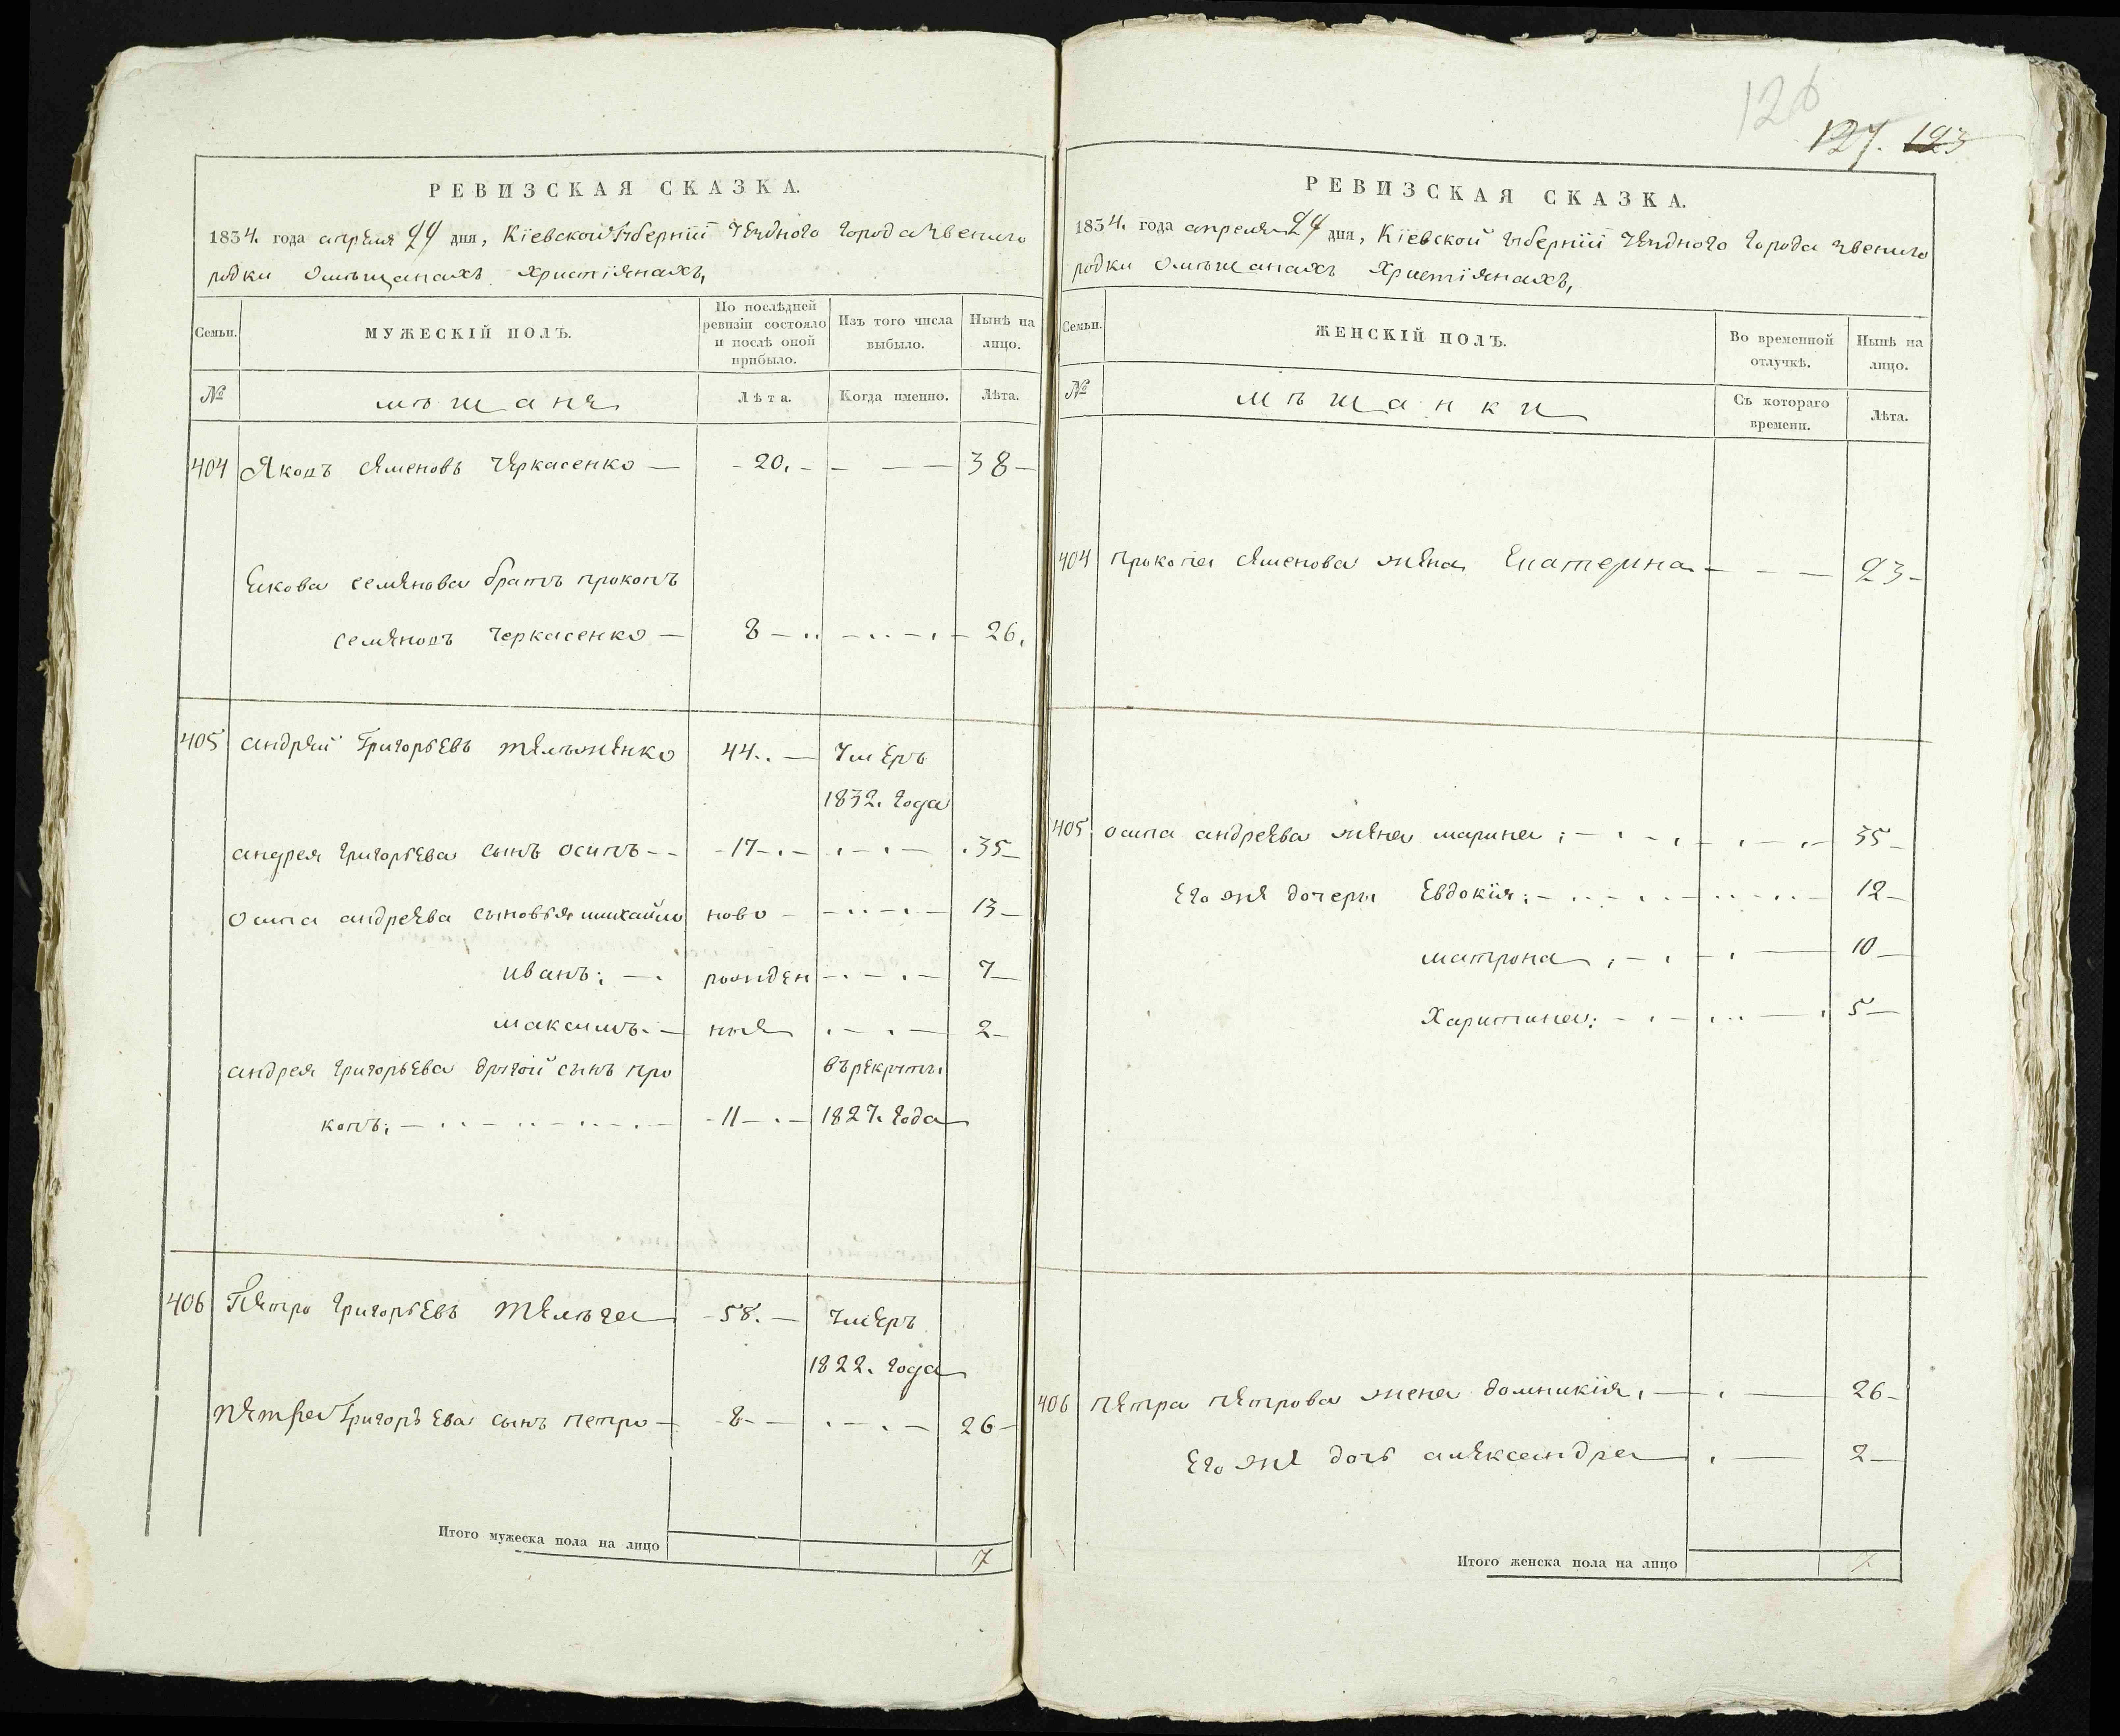 126
127. 123
РЕВИЗСКАЯ СКАЗКА.
1834. года апреля 24 дня, Кіевской Губерніи уезднаго города Звениго
родки омѣщанахъ христіянахъ,
Семьи.
МУЖЕСКІЙ ПОЛЪ.
По послѣдней ревизіи состояло и послѣ оной прибыло.
Изъ того числа выбыло.
Нынѣ на лицо.
№
мѣщане
Лѣта.
Когда именно.
Лѣта.
404 Яковъ Семеновъ Черкасенко — - 20. - - — — 38 -
Екова семенова братъ прокопъ
семеновъ черкасенко — 8 — .. — .. — . — 26.
405 андрей Григорьевъ тележенко 44.. — Умеръ
1832. года
андрея григорьева сынъ осипъ - - - 17 - . - . - . — . 35 -
осипа андреева сыновья михайло ново - - .. - . - 13 -
иванъ; — . рожден - . - . - 7 -
максимъ. - ные . - . — 2 -
андрея григорьева другой сынъ про въ рекруты
копъ; - 11 - . - 1827. года
406 Петро григорьевъ телега - 58. — Умеръ
1822. года
петра Григорьева сынъ петро - - 8 - - . - . - 26 -
Итого мужеска пола на лицо 7
РЕВИЗСКАЯ СКАЗКА.
1834. года апреля 24 дня, Кіевской губерніи уезднаго города звениго
родки омѣщанахъ христіянахъ,
Семьи.
ЖЕНСКІЙ ПОЛЪ.
Во временной отлучкѣ.
Нынѣ на лицо.
№
мѣщанки
Съ котораго времени.
Лѣта.
404 прокопа семенова жена Екатерина - - — 23 -
405 осипа андреева жена марина ; - . - . . - . - 35 -
Его же дочери Евдокія; - .. - . - .. - .. - 12 -
матрона , - . - . — 10 -
Харитина; - . - . .. — . 5 -
406 петра петрова жена домникія. — . — 26 -
Его же дочь александра — . — 2 -
Итого женска пола на лицо 7